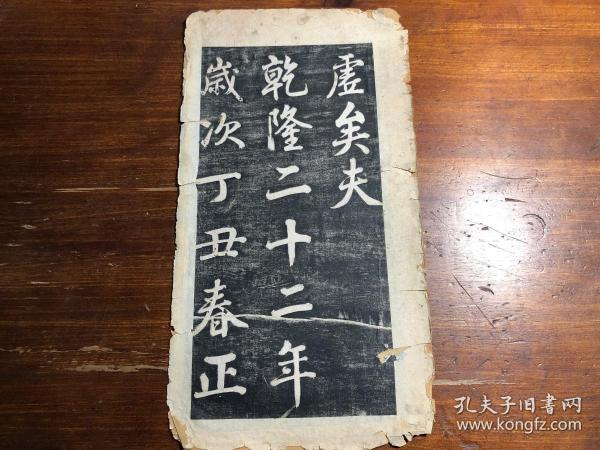 虗矣夫
乾隆二十二年
歲次丁丑春正
孔夫子旧书网
www.kongfz.com